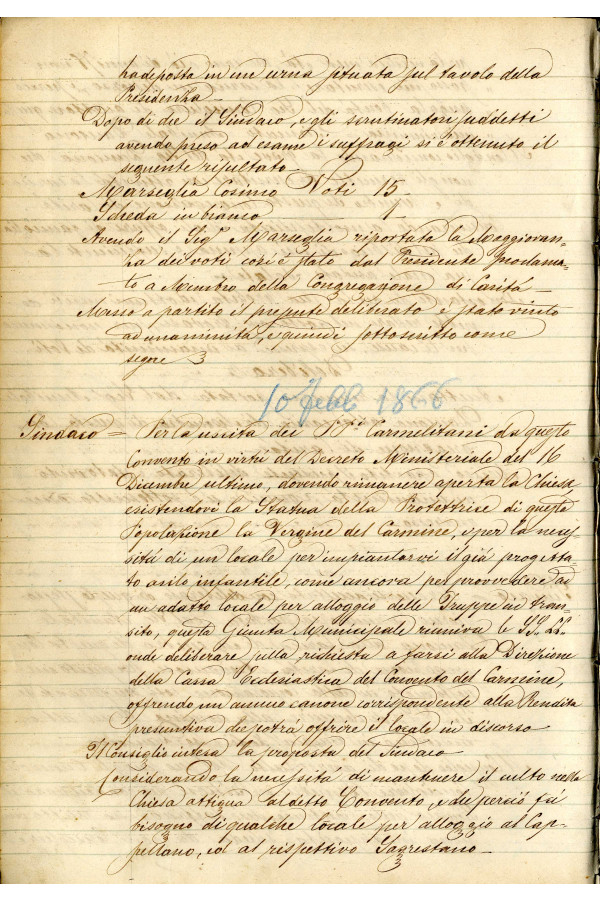 ha deposta in une urna situata sul tavolo della
Presidenza
Dopo di che il Sindaco, e gli scrutinatori suddetti
avendo preso ad esame i suffragi si è ottenuto il
seguente risultato
Marseglia Cosimo Voti 15
Scheda in bianco 1
Avendo il Sigr Marseglia riportata la Maggioran-
za dei voti così è stato dal Presidente proclama-
to a Membro della Congregazione di Carità
Messo a partito il presente deliberato è stato vinto
ad unanimità, e quindi sottoscritto come
segue
10 Febb 1866
Sindaco = Per la uscita dei P.P. Carmelitani da questo
Convento in virtù del Decreto Ministeriale del 16
Dicembre ultimo, dovendo rimanere aperta la Chiesa
esistendovi la Statua della Protettrice di questa
Popolazione la Vergine del Carmine, e per la neces-
sità di un locale per impiantarvi il già progetta-
to asilo infantile, come ancora per provvedere ad
un adatto locale per alloggio delle Truppe in tran-
sito, questa Giunta Municipale riuniva le SS. LL.
onde deliberare sulla richiesta a farsi alla Direzione
della Cassa Ecclesiastica del Convento del Carmine,
offrendo un annuo canone corrispondente alla Rendita
presuntiva che potrà offrire il locale in discorso
Il Consiglio intesa la proposta del Sindaco
Considerando la necessità di mantenere il culto nella
Chiesa attigua al detto Convento, e che perciò fà
bisogno di qualche locale per alloggio al Cap-
pellano, ed al rispettivo Sagrestano